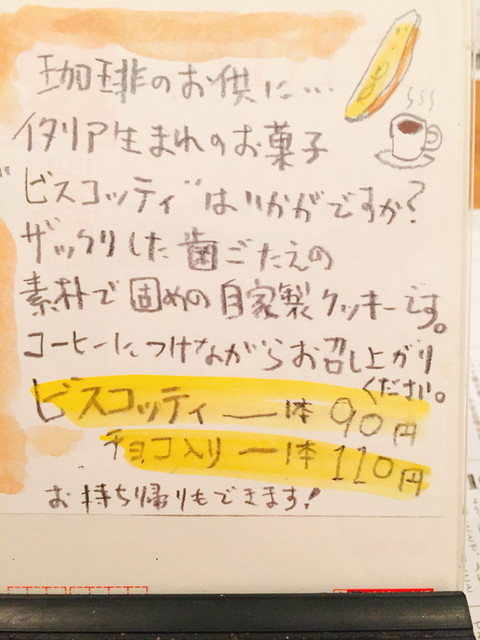 珈琲のお供に…
イタリア生まれのお菓子
"ビスコッティ"はいかがですか?
ザックリした歯ごたえの
素朴で固めの自家製クッキーです。
コーヒーにつけながらお召し上がり
ください。
ビスコッティ 一本 90円
チョコ入り 一本 110円
お持ち帰りもできます!